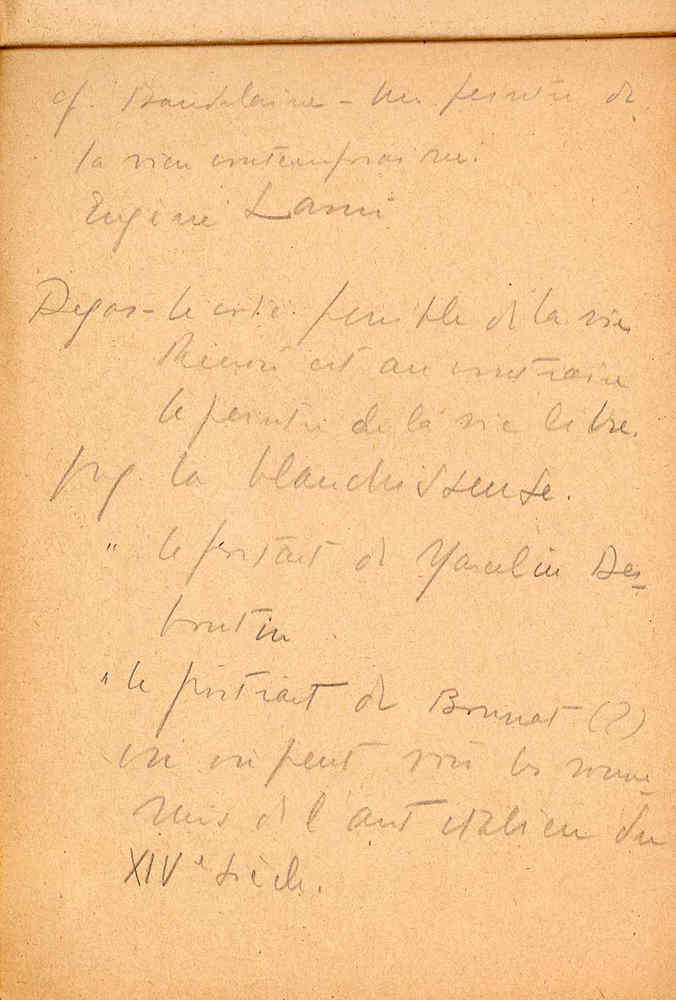 cf. Baudelaire - Un peintre de
la vie contemporaine.
Eugène Lami
Degas - le côté pénible de la vie
Renoir est au contraire
le peintre de la vie libre.
la blanchisseuse.
" le portrait de Marcelin Des-
boutin
" le portrait de Bonnat (?)
où on peut voir les souve-
nirs de l'art italien du
XIVe siècle.